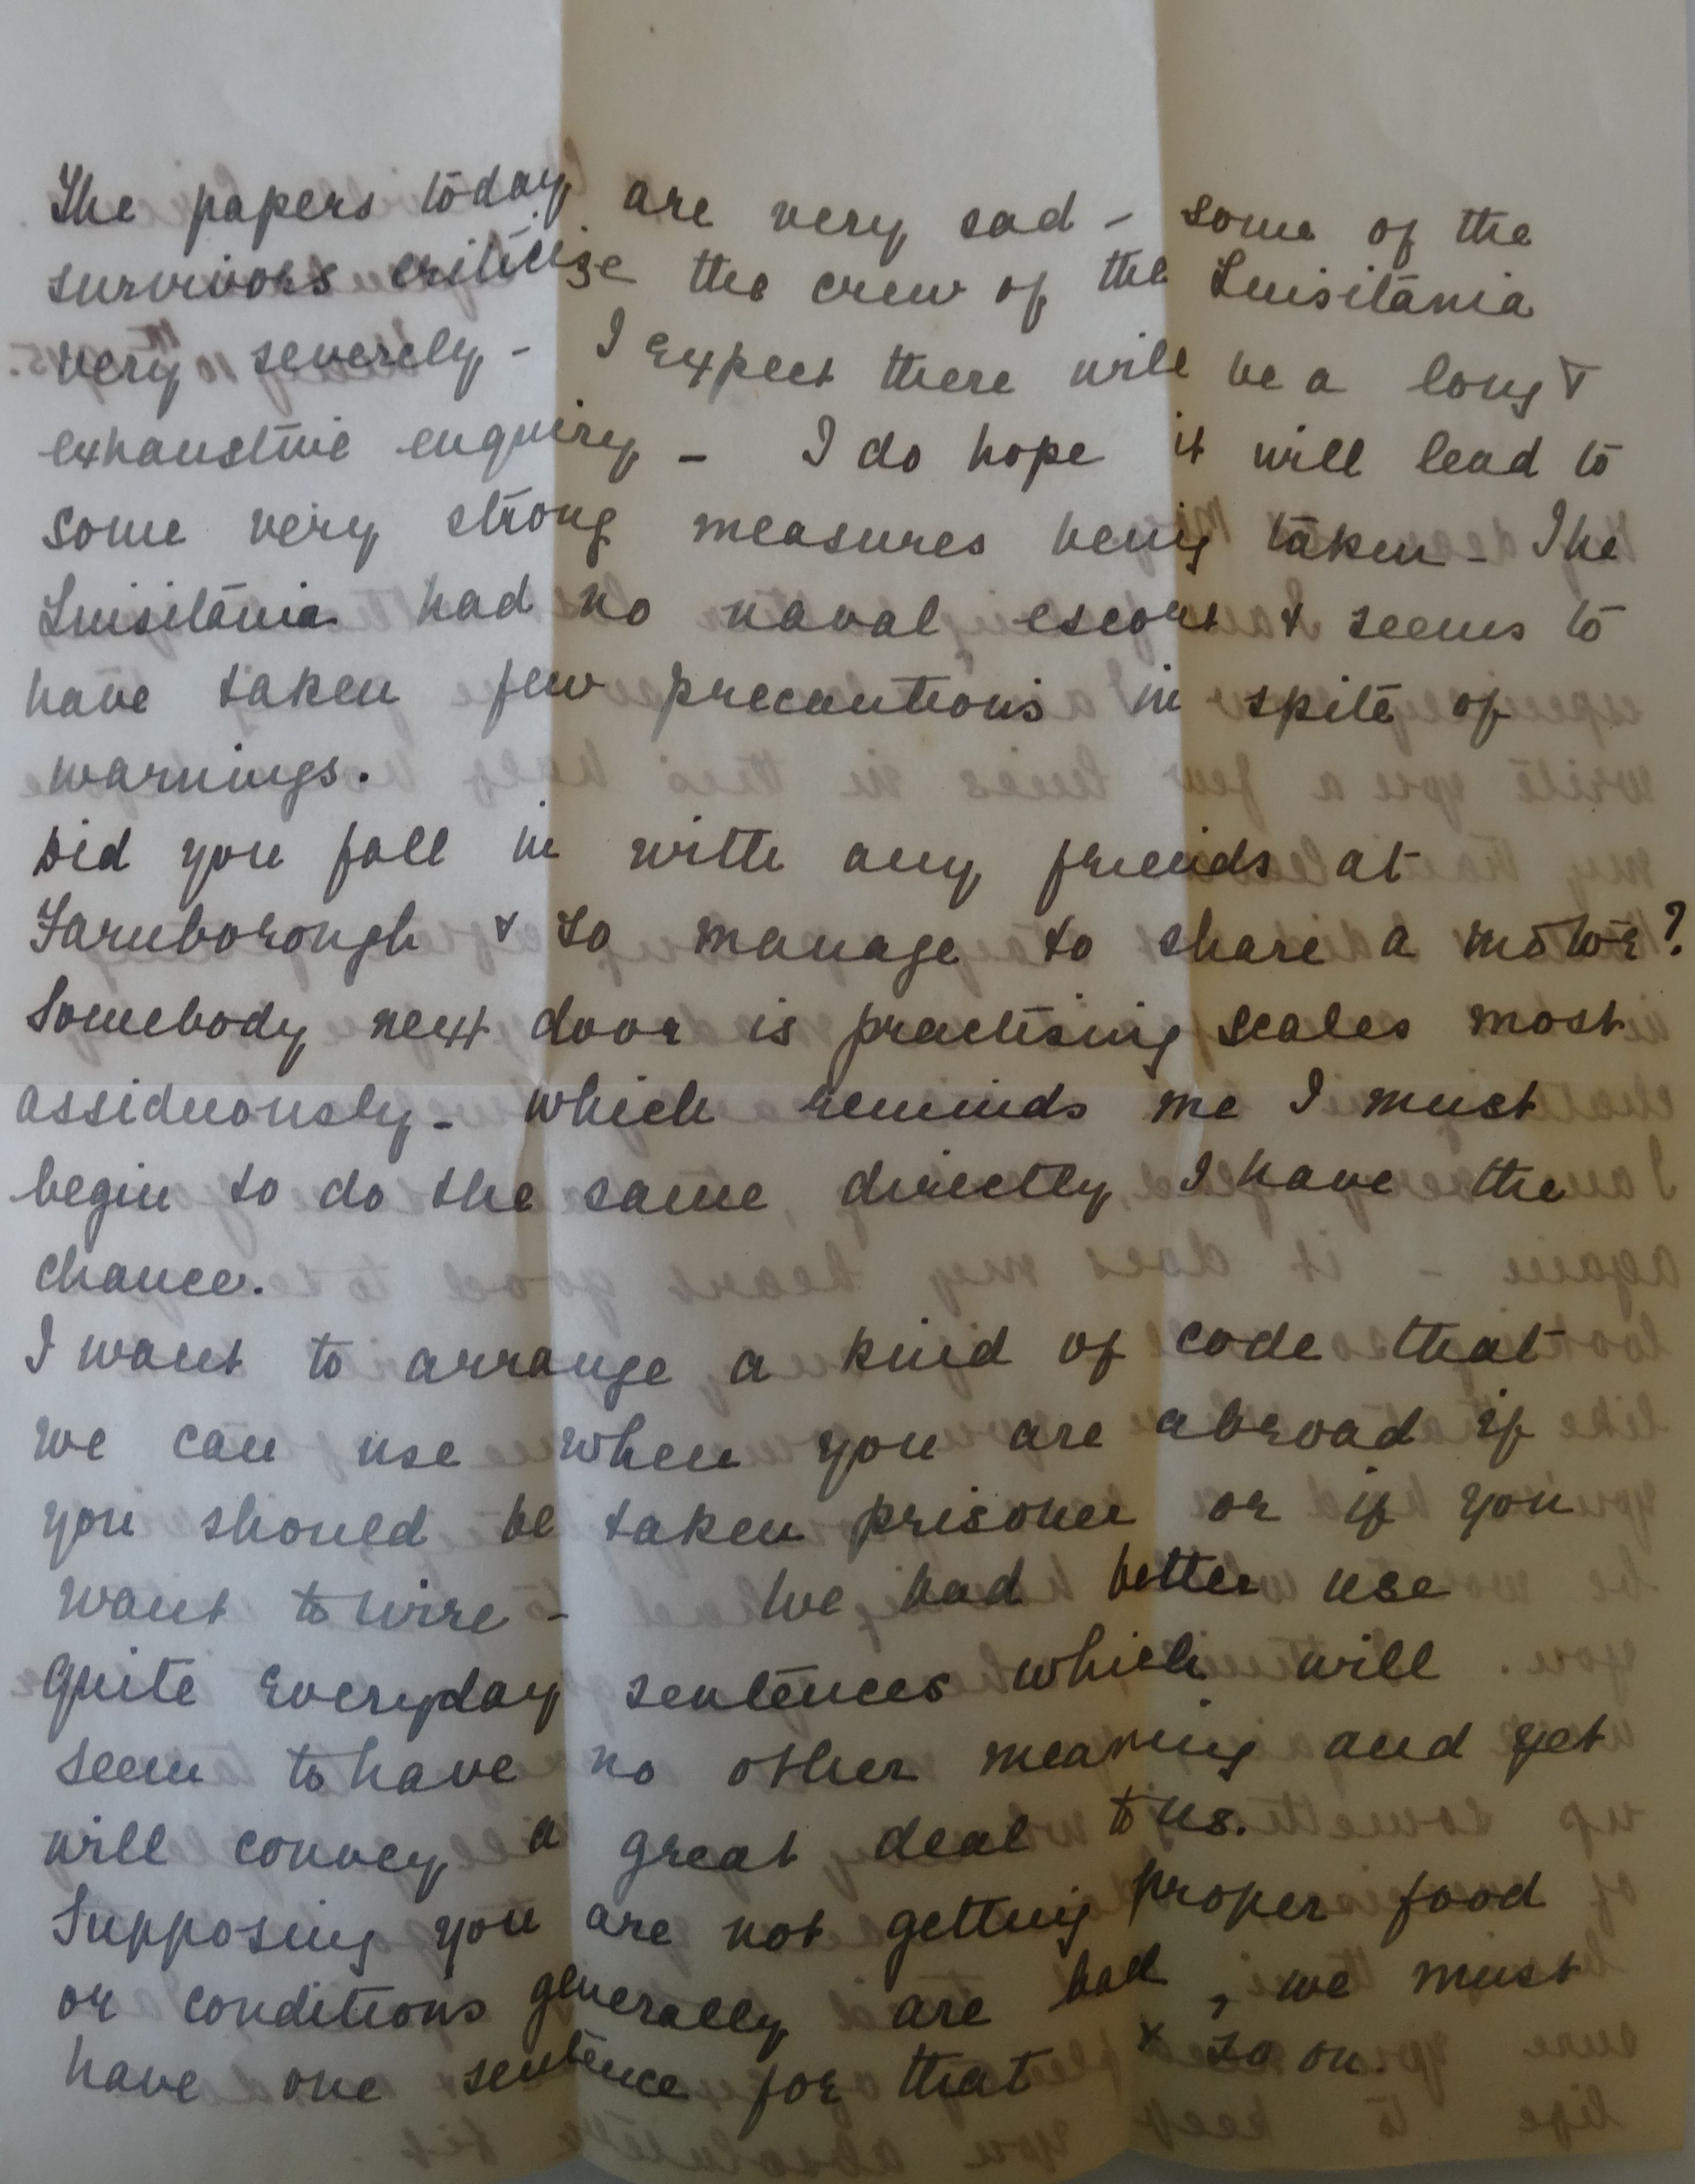 The papers today are very sad - some of the
survivors criticise the crew of the Luisitania
very severely - I expect there will be a long &
exhaustive enquiry - I do hope it will lead to
some very strong measures being taken - The
Luisitania had no naval escort & seems to
have taken few precautions in spite of
warnings.
Did you fall in with any friends at
Farnborough & so manage to share a motor?
Somebody next door is practising scales most
assiduously - which reminds me I must
begin to do the same directly I have the
chance.
I want to arrange a kind of code that
we can use when you are abroad if
you should be taken prisoner or if you
want to wire - We had better use
quite everyday sentences which will
seem to have no other meaning and yet
will convey a great deal to us.
Supposing you are not getting proper food
or conditions generally are bad, we must
have one sentence for that & so on.